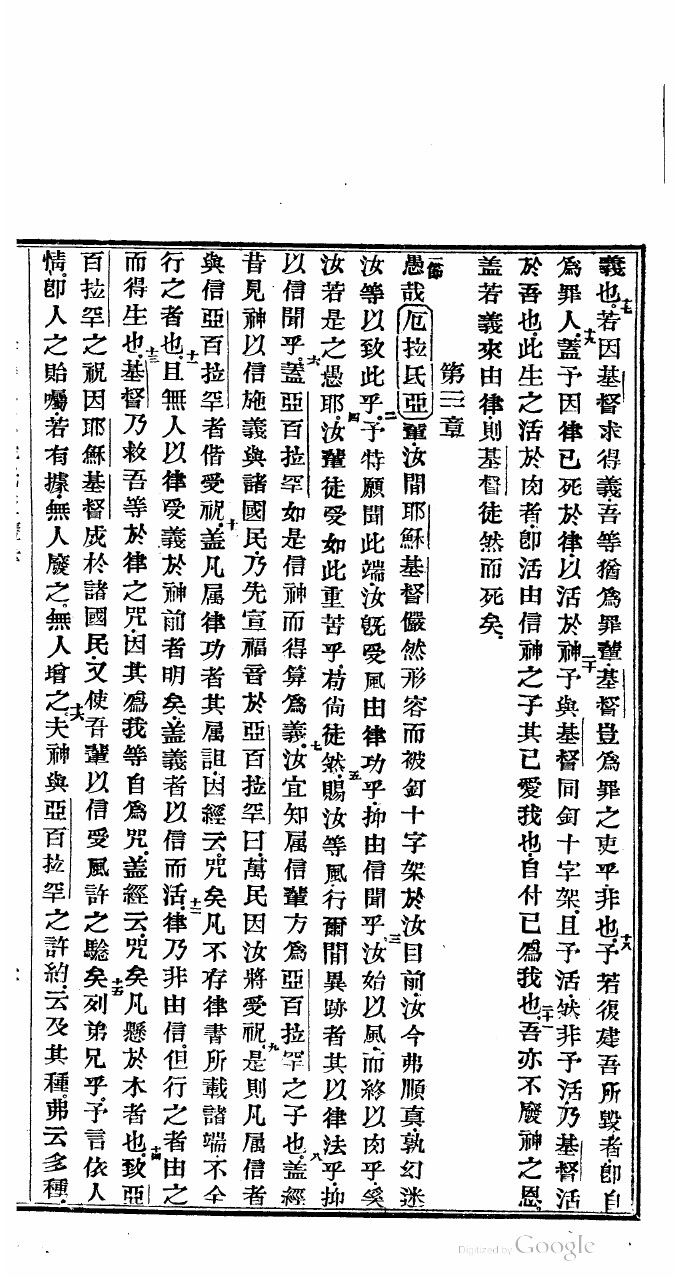 義也十七若因基督求得義吾等猶爲罪輩基督豈爲罪之吏乎非也十八予若復建吾所毀者卽自
爲罪人十九蓋予因律已死於律以活於神二十予與基督同釘十字架且予活然非予活乃基督活
於吾也此生之活於肉者卽活由信神之子其已愛我也自付已爲我也二十一吾亦不廢神之恩
盖若義來由律則基督徒然而死矣
第三章
一節愚哉厄拉氏亞輩汝間耶穌基督儼然形容而被釘十字架於汝目前汝今弗順真孰幻迷
汝等以致此乎二予特願聞此端汝旣受風由律功乎抑由信聞乎三汝始以風而終以肉乎奚
汝若是之愚耶四汝輩徒受如此重苦乎苟尙徒然五賜汝等風行爾間異跡者其以律法乎抑
以信聞乎六蓋亞百拉罕如是信神而得算爲義七汝宜知属信輩方爲亞百拉罕之子也八盖經
昔見神以信施義與諸國民乃先宣福音於亞百拉罕曰萬民因汝將受祝九是則凡属信者
與信亞百拉罕者偕受祝十盖凡属律功者其属詛因經云咒矣凡不存律書所載諸端不全
行之者也十一且無人以律受義於神前者明矣盖義者以信而活十二律乃非由信但行之者由之
而得生也十三基督乃救吾等於律之咒因其爲我等自爲咒盖經云咒矣凡懸於木者也十四致亞
百拉罕之祝因耶穌基督成於諸國民又使吾輩以信受風許之騐矣十五列弟兄乎予言依人
情卽人之貽囑若有據無人廢之無人增之十六夫神與亞百拉罕之許約云及其種弗云多種
Digitized by Google